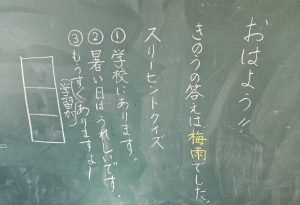 おはよう!!
きのうの答えは梅雨でした。
スリーヒントクイズ
①学校にあります。
②暑い日はうれしいです。
③もうすぐありますよー
学習